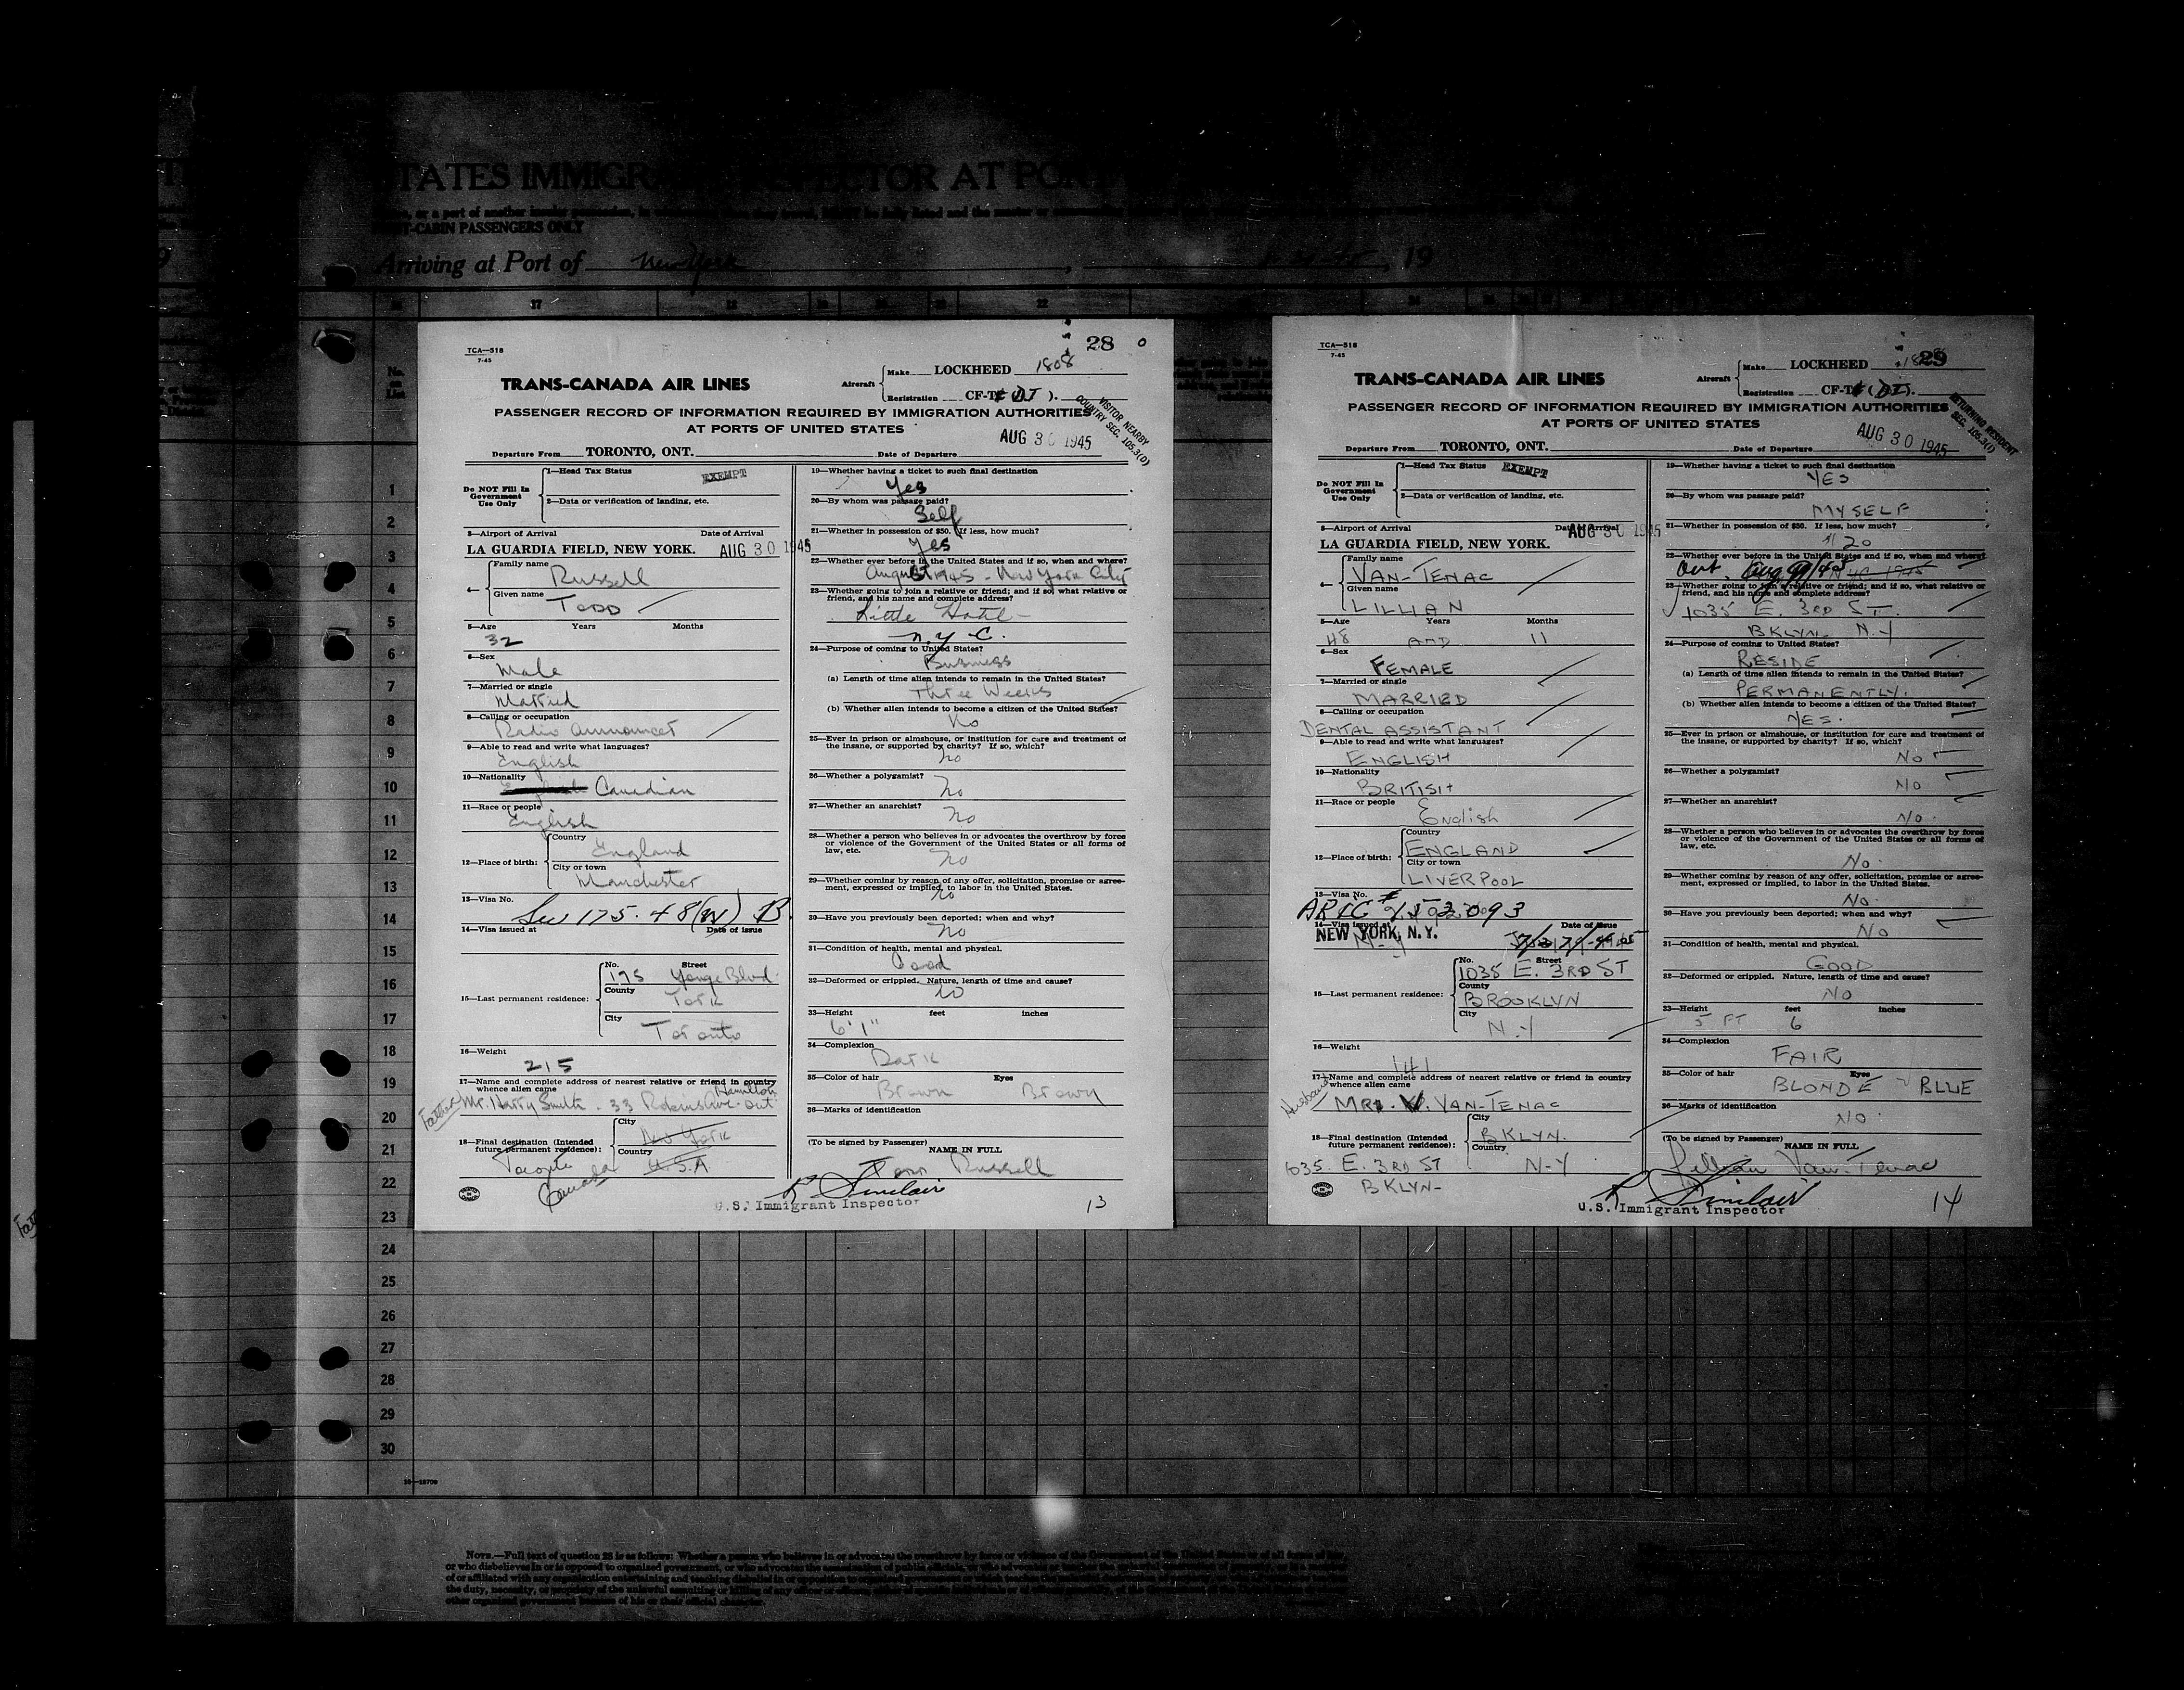 TATES IMMIGR
CTOR AT PO
T-CABIN PASSENGERS ONLY
Arriving at Port of New York , 19
17 18 22
No. on List
1
2
3
4
5
6
7
8
9
10
11
12
13
14
15
16
17
18
19
20
21
22
23
24
25
26
27
28
29
30
TCA—518
7-45
28
TRANS-CANADA AIR LINES
Aircraft
Make LOCKHEED 1808
Registration CF-T
PASSENGER RECORD OF INFORMATION REQUIRED BY IMMIGRATION AUTHORITIES
AT PORTS OF UNITED STATES
VISITOR NEARBY
COUNTRY SEC. 105.3(D)
AUG 30 1945
Departure From TORONTO, ONT. Date of Departure
Do NOT Fill In Government Use Only
1—Head Tax Status EXEMPT
2—Data or verification of landing, etc.
3—Airport of Arrival Date of Arrival
LA GUARDIA FIELD, NEW YORK. AUG 30 1945
4—
Family name Russell
Given name TODD
5—Age Years Months
32
6—Sex
Male
7—Married or single
Married
8—Calling or occupation
Radio announcer
9—Able to read and write what languages?
English
10—Nationality
Canadian
11—Race or people
English
12—Place of birth:
Country England
City or town
Manchester
13—Visa No.
Sec 175.48(W) B
14—Visa issued at Date of issue
15—Last permanent residence:
No. Street
175 Yonge Blvd.
County
York
City
Toronto
16—Weight
215
17—Name and complete address of nearest relative or friend in country
whence alien came Hamilton
Father Mr. Harry Smith. 33 Robins Ave. Ont.
18—Final destination (Intended
future permanent residence):
City New York
Country U.S.A.
Toronto
Canada
19—Whether having a ticket to such final destination
Yes
20—By whom was passage paid?
Self
21—Whether in possession of $50. If less, how much?
Yes
22—Whether ever before in the United States and if so, when and where?
August 1945 - New York City
23—Whether going to join a relative or friend; and if so, what relative or
friend, and his name and complete address?
Little Hotel -
N.Y.C.
24—Purpose of coming to United States?
Business
(a) Length of time alien intends to remain in the United States?
Three Weeks
(b) Whether alien intends to become a citizen of the United States?
No
25—Ever in prison or almshouse, or institution for care and treatment of
the insane, or supported by charity? If so, which?
No
26—Whether a polygamist?
No
27—Whether an anarchist?
No
28—Whether a person who believes in or advocates the overthrow by force
or violence of the Government of the United States or all forms of
law, etc.
No
29—Whether coming by reason of any offer, solicitation, promise or agree-
ment, expressed or implied, to labor in the United States.
No
30—Have you previously been deported; when and why?
No
31—Condition of health, mental and physical.
Good
32—Deformed or crippled. Nature, length of time and cause?
No
33—Height feet inches
6'1"
34—Complexion
Dark
35—Color of hair Eyes
Brown Brown
36—Marks of identification
(To be signed by Passenger) NAME IN FULL
Todd Russell
R Sinclair
U.S. Immigrant Inspector
13
TCA—518
7-45
29
TRANS-CANADA AIR LINES
Aircraft
Make LOCKHEED
Registration CF-T
PASSENGER RECORD OF INFORMATION REQUIRED BY IMMIGRATION AUTHORITIES
AT PORTS OF UNITED STATES
RETURNING RESIDENT
SEC. 105.3(1)
AUG 30 1945
Departure From TORONTO, ONT. Date of Departure
Do NOT Fill In Government Use Only
1—Head Tax Status EXEMPT
2—Data or verification of landing, etc.
3—Airport of Arrival Date of Arrival
LA GUARDIA FIELD, NEW YORK. AUG 30 1945
4—
Family name
VAN-TENAC
Given name
LILLIAN
5—Age Years Months
48 AND 11
6—Sex
FEMALE
7—Married or single
MARRIED
8—Calling or occupation
DENTAL ASSISTANT
9—Able to read and write what languages?
ENGLISH
10—Nationality
BRITISH
11—Race or people
English
12—Place of birth:
Country
ENGLAND
City or town
LIVERPOOL
13—Visa No.
14—Visa issued at Date of issue
NEW YORK, N.Y.
15—Last permanent residence:
No. Street
1035 E. 3RD ST
County
BROOKLYN
City
N.Y
16—Weight
141
17—Name and complete address of nearest relative or friend in country
whence alien came
Husband
VAN-TENAC
18—Final destination (Intended
future permanent residence):
City
BKLYN.
Country
N-Y
1035. E. 3RD ST
BKLYN-
19—Whether having a ticket to such final destination
YES
20—By whom was passage paid?
MYSELF
21—Whether in possession of $50. If less, how much?
$20
22—Whether ever before in the United States and if so, when and where?
Out. Aug
23—Whether going to join a relative or friend; and if so, what relative or
friend, and his name and complete address?
1035 E. 3RD ST.
BKLYN- N.Y
24—Purpose of coming to United States?
RESIDE
(a) Length of time alien intends to remain in the United States?
PERMANENTLY.
(b) Whether alien intends to become a citizen of the United States?
YES.
25—Ever in prison or almshouse, or institution for care and treatment of
the insane, or supported by charity? If so, which?
NO
26—Whether a polygamist?
NO
27—Whether an anarchist?
NO.
28—Whether a person who believes in or advocates the overthrow by force
or violence of the Government of the United States or all forms of
law, etc.
NO.
29—Whether coming by reason of any offer, solicitation, promise or agree-
ment, expressed or implied, to labor in the United States.
NO.
30—Have you previously been deported; when and why?
NO
31—Condition of health, mental and physical.
GOOD
32—Deformed or crippled. Nature, length of time and cause?
NO
33—Height feet inches
5 FT 6
34—Complexion
FAIR
35—Color of hair Eyes
BLONDE BLUE
36—Marks of identification
NO.
(To be signed by Passenger) NAME IN FULL
Lillian Van-Tenac
R Sinclair
U.S. Immigrant Inspector
14